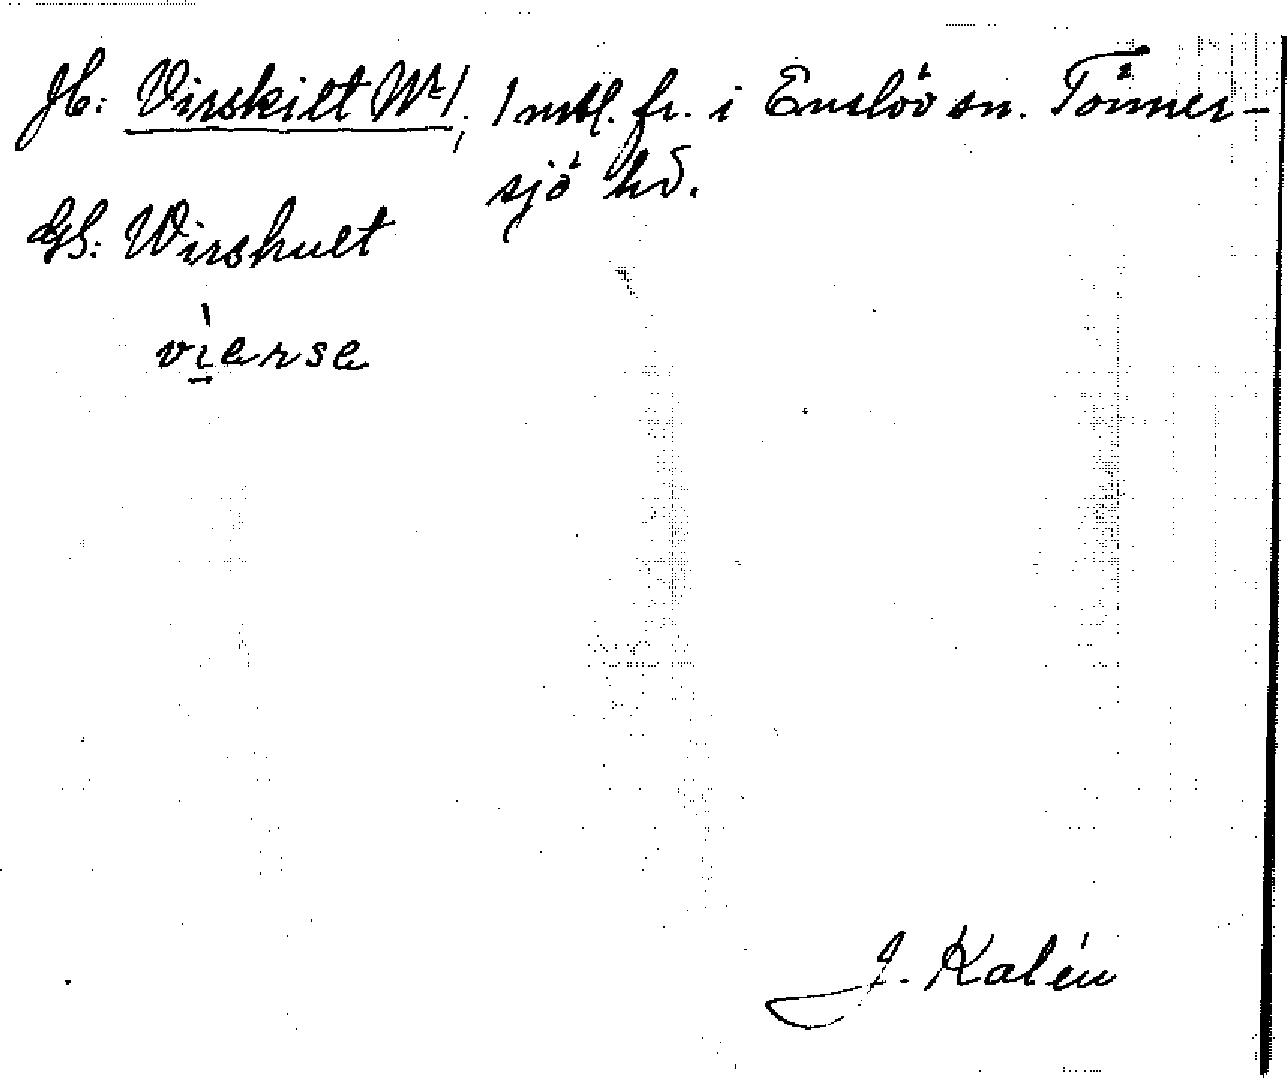 Jb: Virskilt No 1, 1 mtl. fr. i Enslöv sn. Tönner-
sjö hd.
GS: Wirshult
vi̲erse
J. Kalén